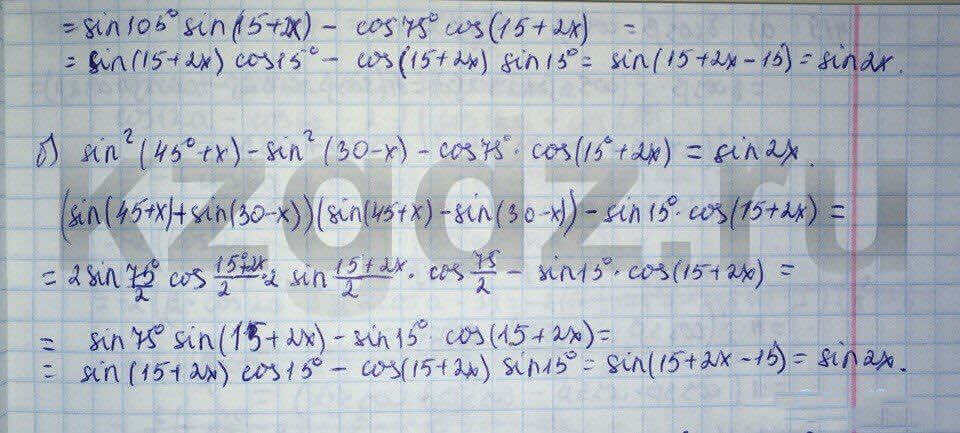 = sin105° sin(15+2x) - cos75° cos(15+2x) =
= sin(15+2x) cos15° - cos(15+2x) sin15° = sin(15+2x-15) = sin2x.
б) sin²(45°+x) - sin²(30-x) - cos75°· cos(15°+2x) = sin2x.
(sin(45+x)+sin(30-x))(sin(45+x)-sin(30-x)) - sin15°· cos(15+2x) =
= 2sin 75°/2 cos 15°+2x/2 · 2 sin 15+2x/2 · cos 75/2 - sin15°· cos(15+2x) =
= sin75° sin(15+2x) - sin15° · cos(15+2x) =
= sin(15+2x) cos15° - cos(15+2x) sin15° = sin(15+2x-15) = sin2x.
kzgdz.ru